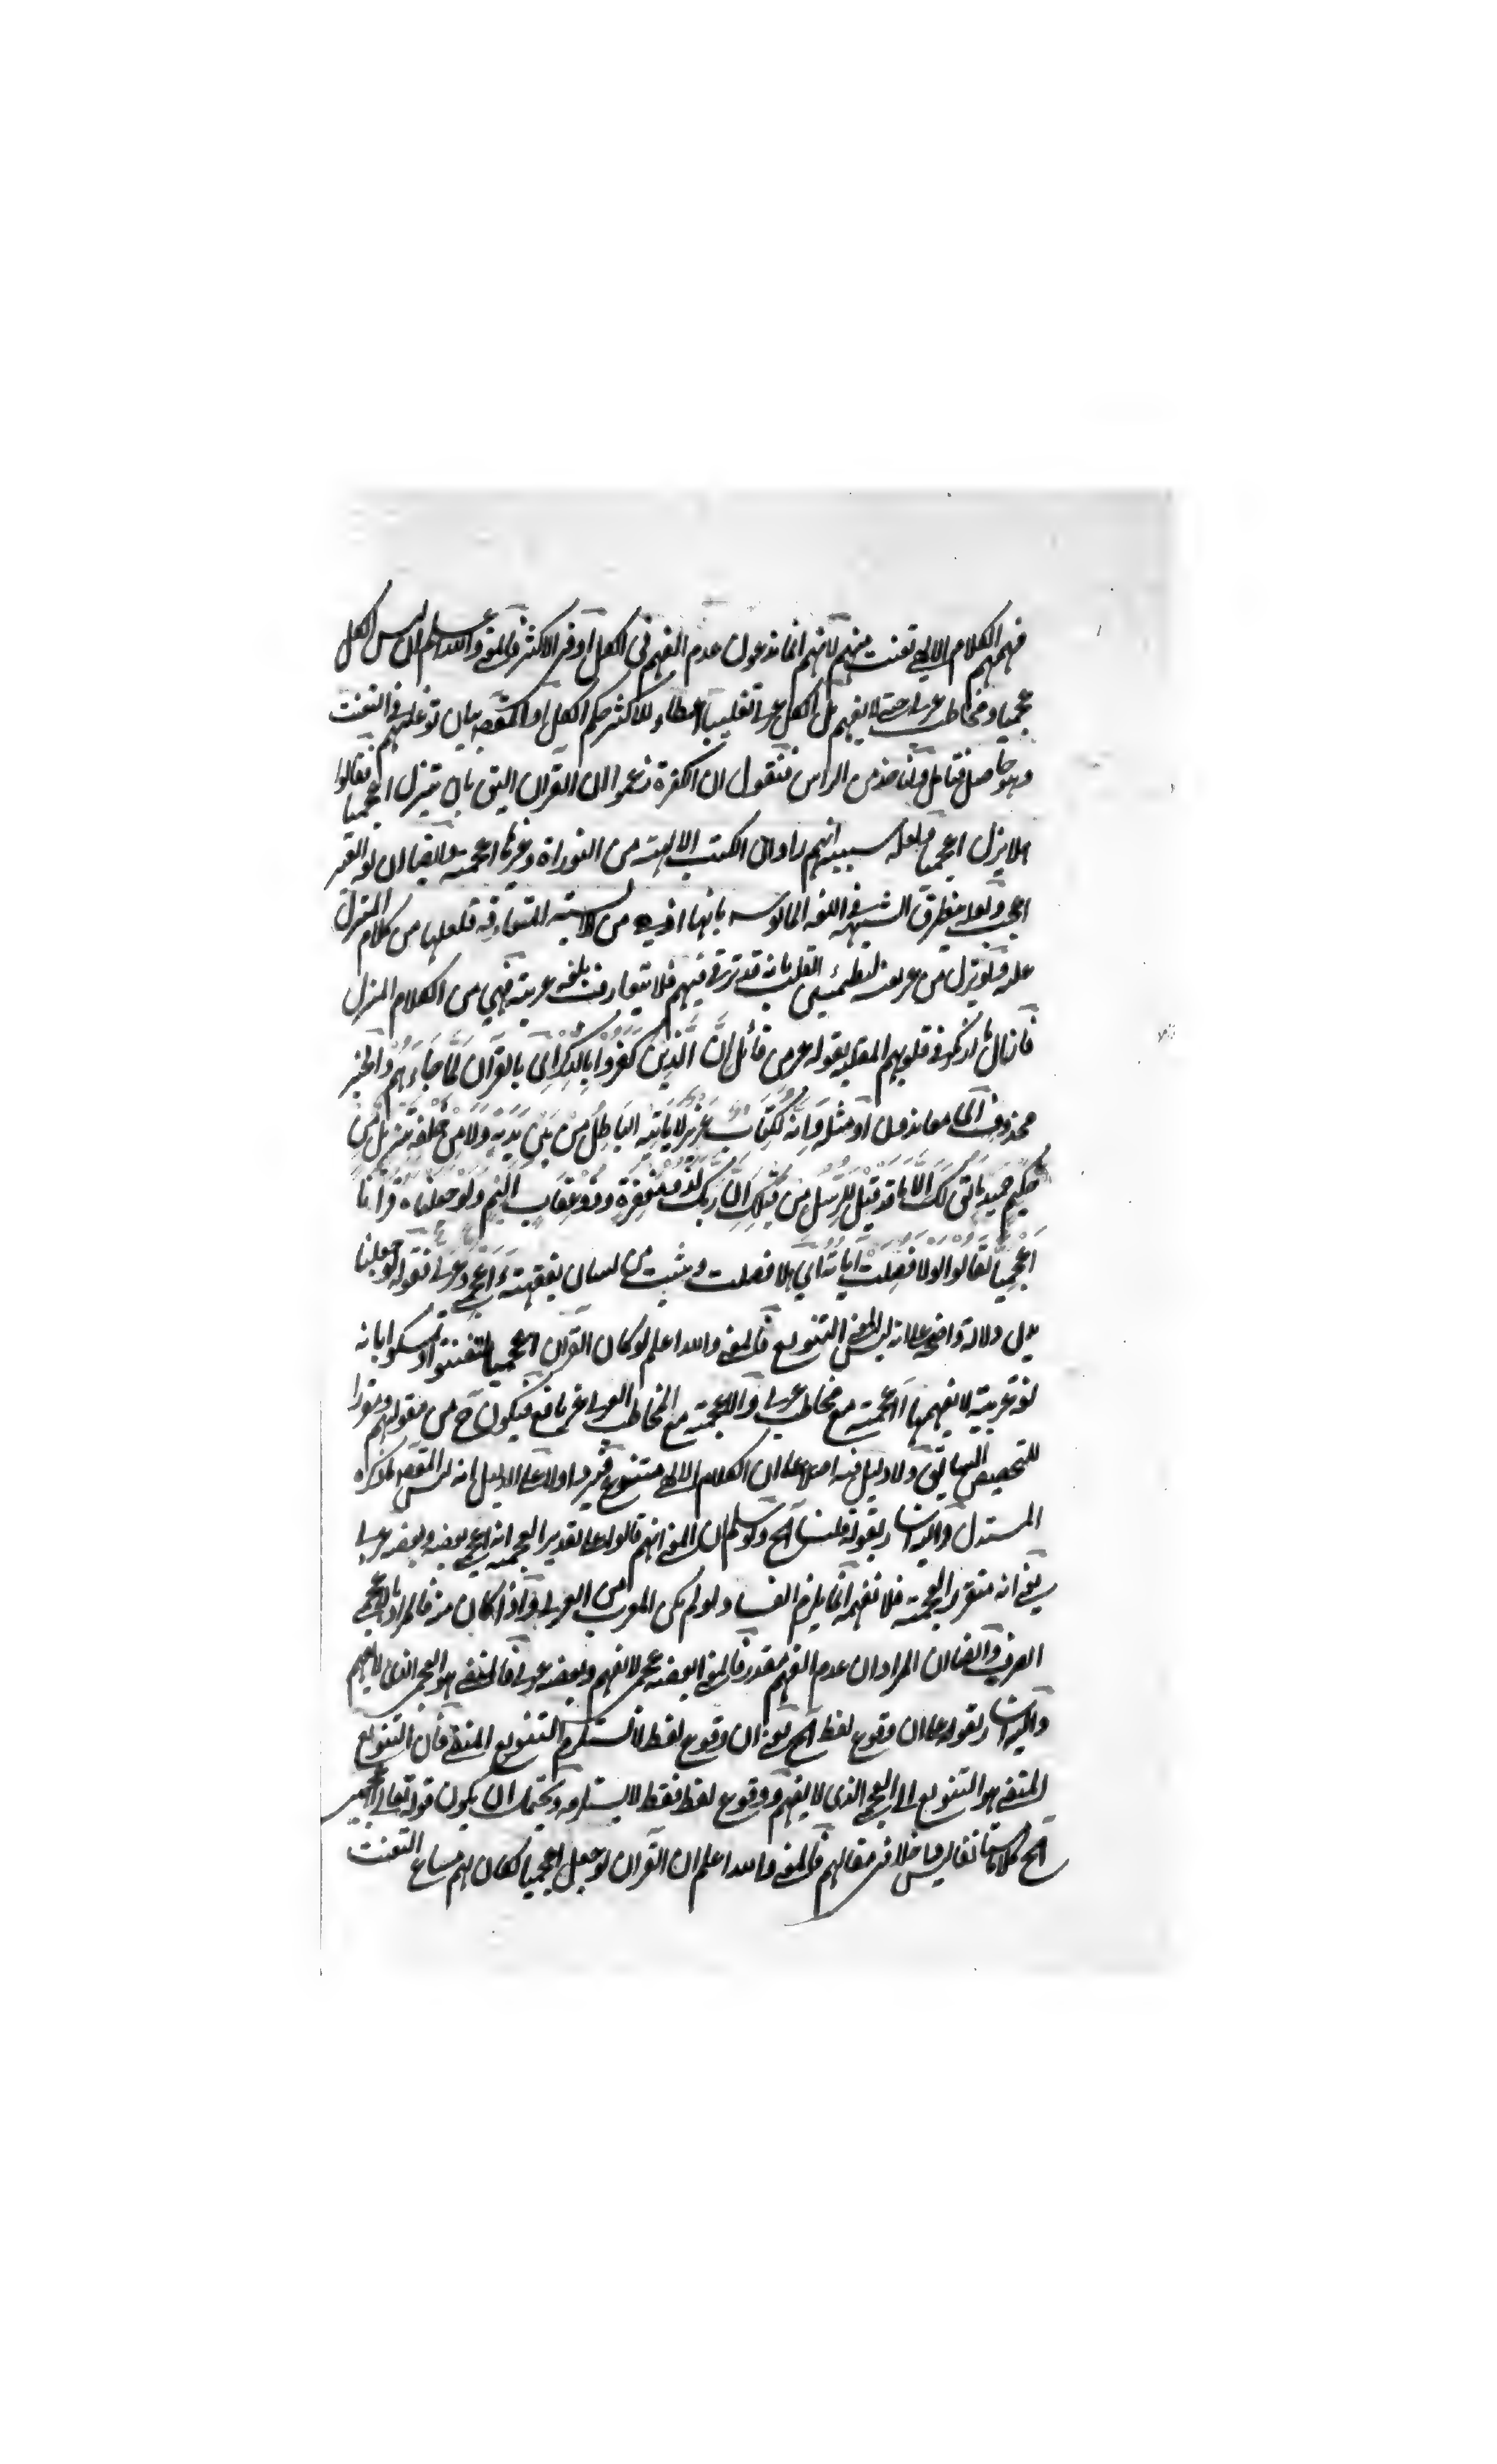 فهمهم الكلام الالهي تعنت منهم لانهم انما يدعون عدم الفهم في الكل او في الاكثر فالمعنى والله اعلم ان ليس الكل
عجميا ومخاطب عربي حتى لا يفهم بل الكل عربي تغليبا اعطاء للاكثر حكم الكل او المقصود بيان توغلهم في التعنت
وهو حاصل فتامل ولناخذ من الراس فنقول ان الكفرة زعموا ان القران اليق بان ينزل اعجميا فقالوا
هلا نزل اعجميا ولعله سببه انهم راوا ان الكتب الالهية من التوراة وغيرها اعجمية وايضا ان لغة العجم
اعجب ولعله يتطرق الشبهة في اللغة المانوسة بانها من الالسنة المتعارفة فلعلها من كلام المنزل
عليه ولو نزل من غير لغته ليطمئن القلب بانه قد تربى فيهم فلا يتعارف بلغة غريبة فهي من الكلام المنزل
فازال ما ارتكز في قلوبهم المقلبة بقوله عز من قائل إن الذين كفروا بالذكر اي بالقرآن لما جاءهم والخبر
محذوف اي معاندون او مثله وإنه لكتاب عزيز لا يأتيه الباطل من بين يديه ولا من خلفه تنزيل من
حكيم حميد ما يقال لك إلا ما قد قيل للرسل من قبلك إن ربك لذو مغفرة وذو عقاب أليم ولو جعلناه قرآنا
أعجميا لقالوا لولا فصلت آياته اي هلا فصلت وبينت من لسان نفقهه أأعجمي وعربي فقوله لو جعلنا
يدل دلالة واضحة على انه ليس المعنى التنويع فالمعنى والله اعلم لو كان القران اعجميا لتعنتوا وتمسكوا بانه
لغة غريبة لا نفهمها أاعجمية مع مخاطب عربي والاعجمية مع المخاطب العربي غير نافع فيكون ح من مقولهم
للتحضيض السابق ولا دليل فيه اصلا على ان الكلام الالهي متنوع فيرد اولا على الدليل انه ليس المقصود ما ذكره
المستدل واليه اشار بقوله قلنا الخ ولو سلم ان المعنى انهم قالوا على تقدير العجمية انه اعجمي بعضه وبعضه عربي
يعني انه متقرر العجمية فلا نفهمه انما يلزم الفساد لو لم يكن المعرب من العربي واذا كان منه فالمراد بالاعجمي
الصرف وايضا ان المراد ان عدم الفهم مقدر فالمعنى ابعضه عجمي لا نفهم وبعضه عربي فالمنفي هو العجمي الذي لا يفهم
واليه اشار بقوله على ان وقوع لفظ الخ يعني ان وقوع لفظ لا يستلزم التنويع المنفي فان التنويع
المنفي هو التنويع الى العجمي الذي لا يفهم ووقوع لفظ فقط لا يستلزمه ويحتمل ان يكون قوله تعالى أأعجمي
الخ كلاما مستانفا ليس داخلا في مقالهم فالمعنى والله اعلم ان القران لو جعل اعجميا لكان لهم مساغ التعنت